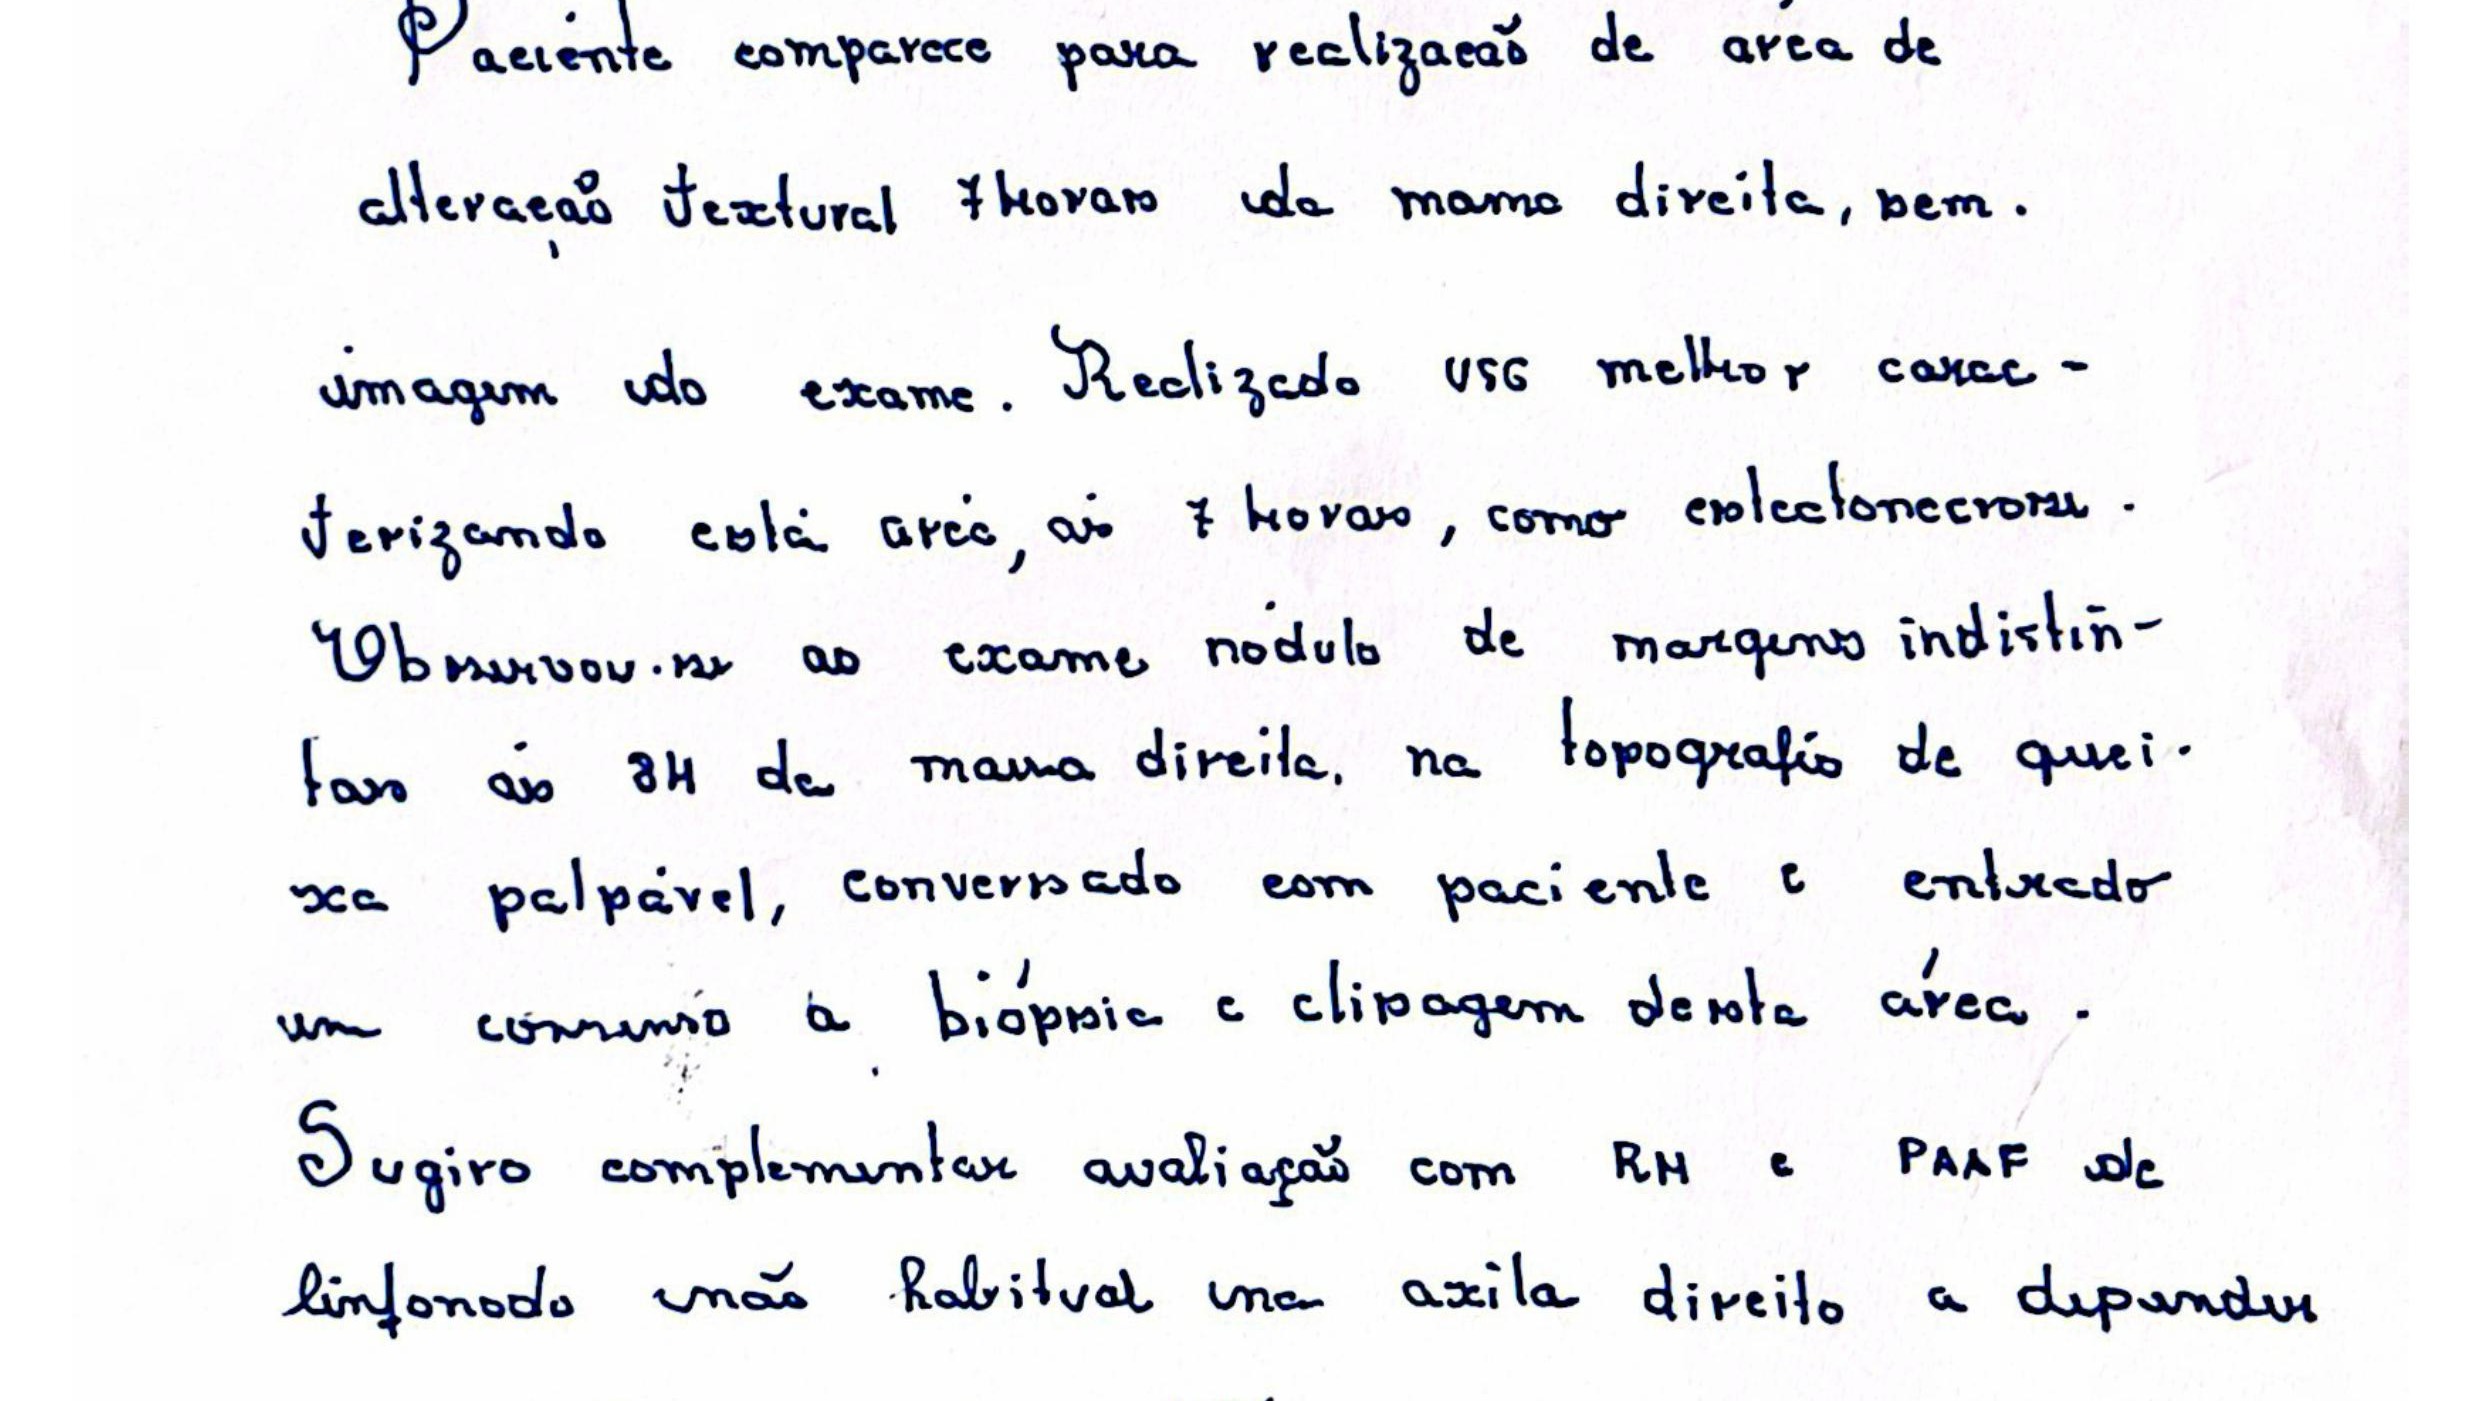 Paciente comparece para realizacaõ de area de
alteração textural 7 horas da mama direita, sem.
imagem do exame. Realizado USG melhor carac-
terizando está area, as 7 horas, como esteatonecrose.
Observou-se ao exame nódulo de margens indistin-
tas ás 8H da mama direita, na topografia de quei-
xa palpável, conversado com paciente e entrado
em consenso a biópsia e clipagem desta área.
Sugiro complementar avaliação com RM e PAAF de
linfonodo não habitual na axila direito a depender